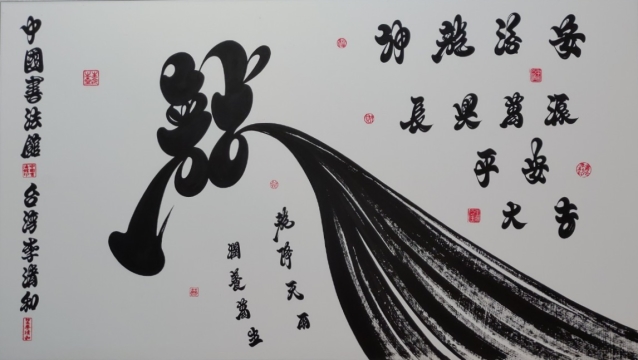 中國書法館 台灣李清和
龍
神龍洛安
長與萬源
平安
大吉
龍降天雨
潤養萬生